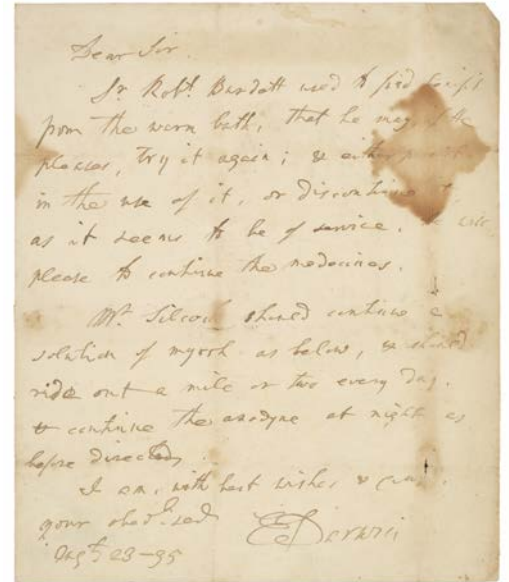 Dear Sir
Sr. Robt. Burdett used to find benefit
from the warm bath, that he may, if He
pleases, try it again; & either persist
in the use of it, or discontinue it,
as it seems to be of service. He will
please to continue the medecines.
Mr. Silcock should continue a
solution of myrrh as below, & should
ride out a mile or two every day.
& continue the anodyne at night as
before directed,
I am, with best wishes &
your obedt. servt
E Darwin
Augt. 23-95